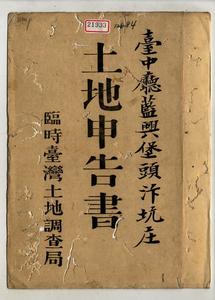 21933
臺中廳藍興堡頭汴坑庄
土地申告書
臨時臺灣土地調查局